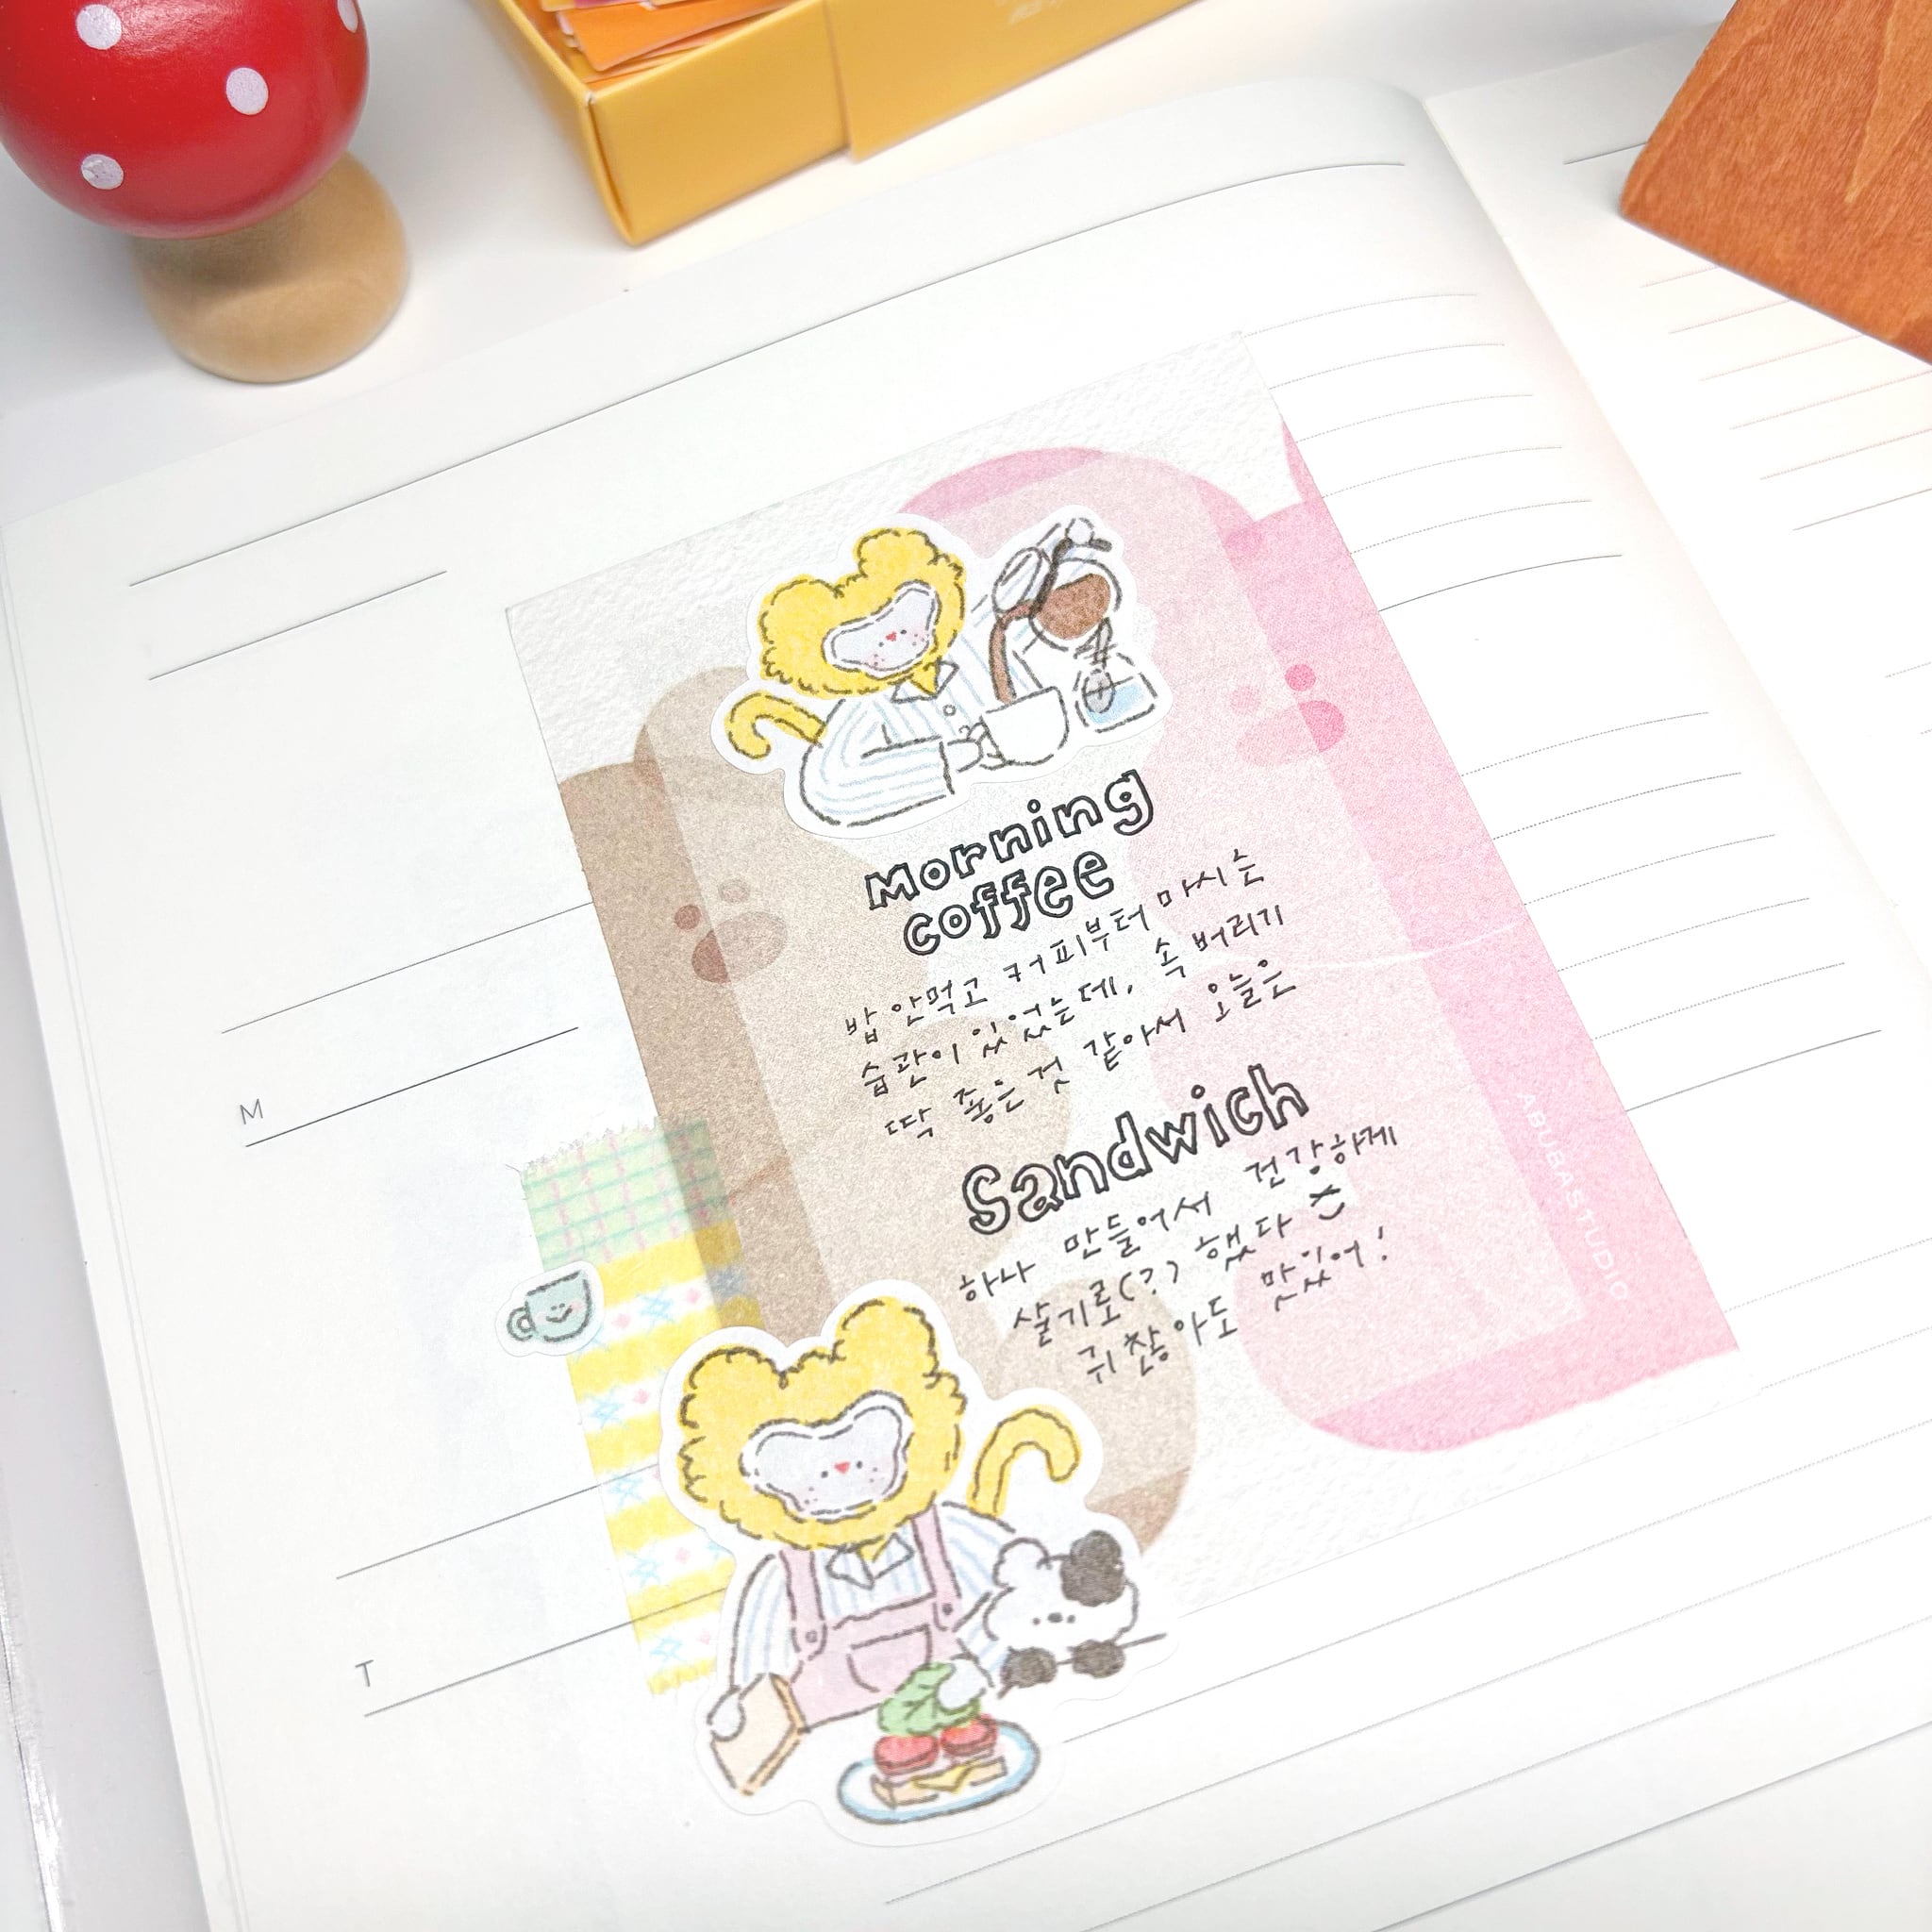 Morning
coffee
밥 안먹고 커피부터 마시는
습관이 있었는데, 속 버리기
딱 좋은것 같아서 오늘은
Sandwich
하나 만들어서 건강하게
살기로(?) 했다
귀찮아도 맛있어!
ABUBASTUDIO
M
T